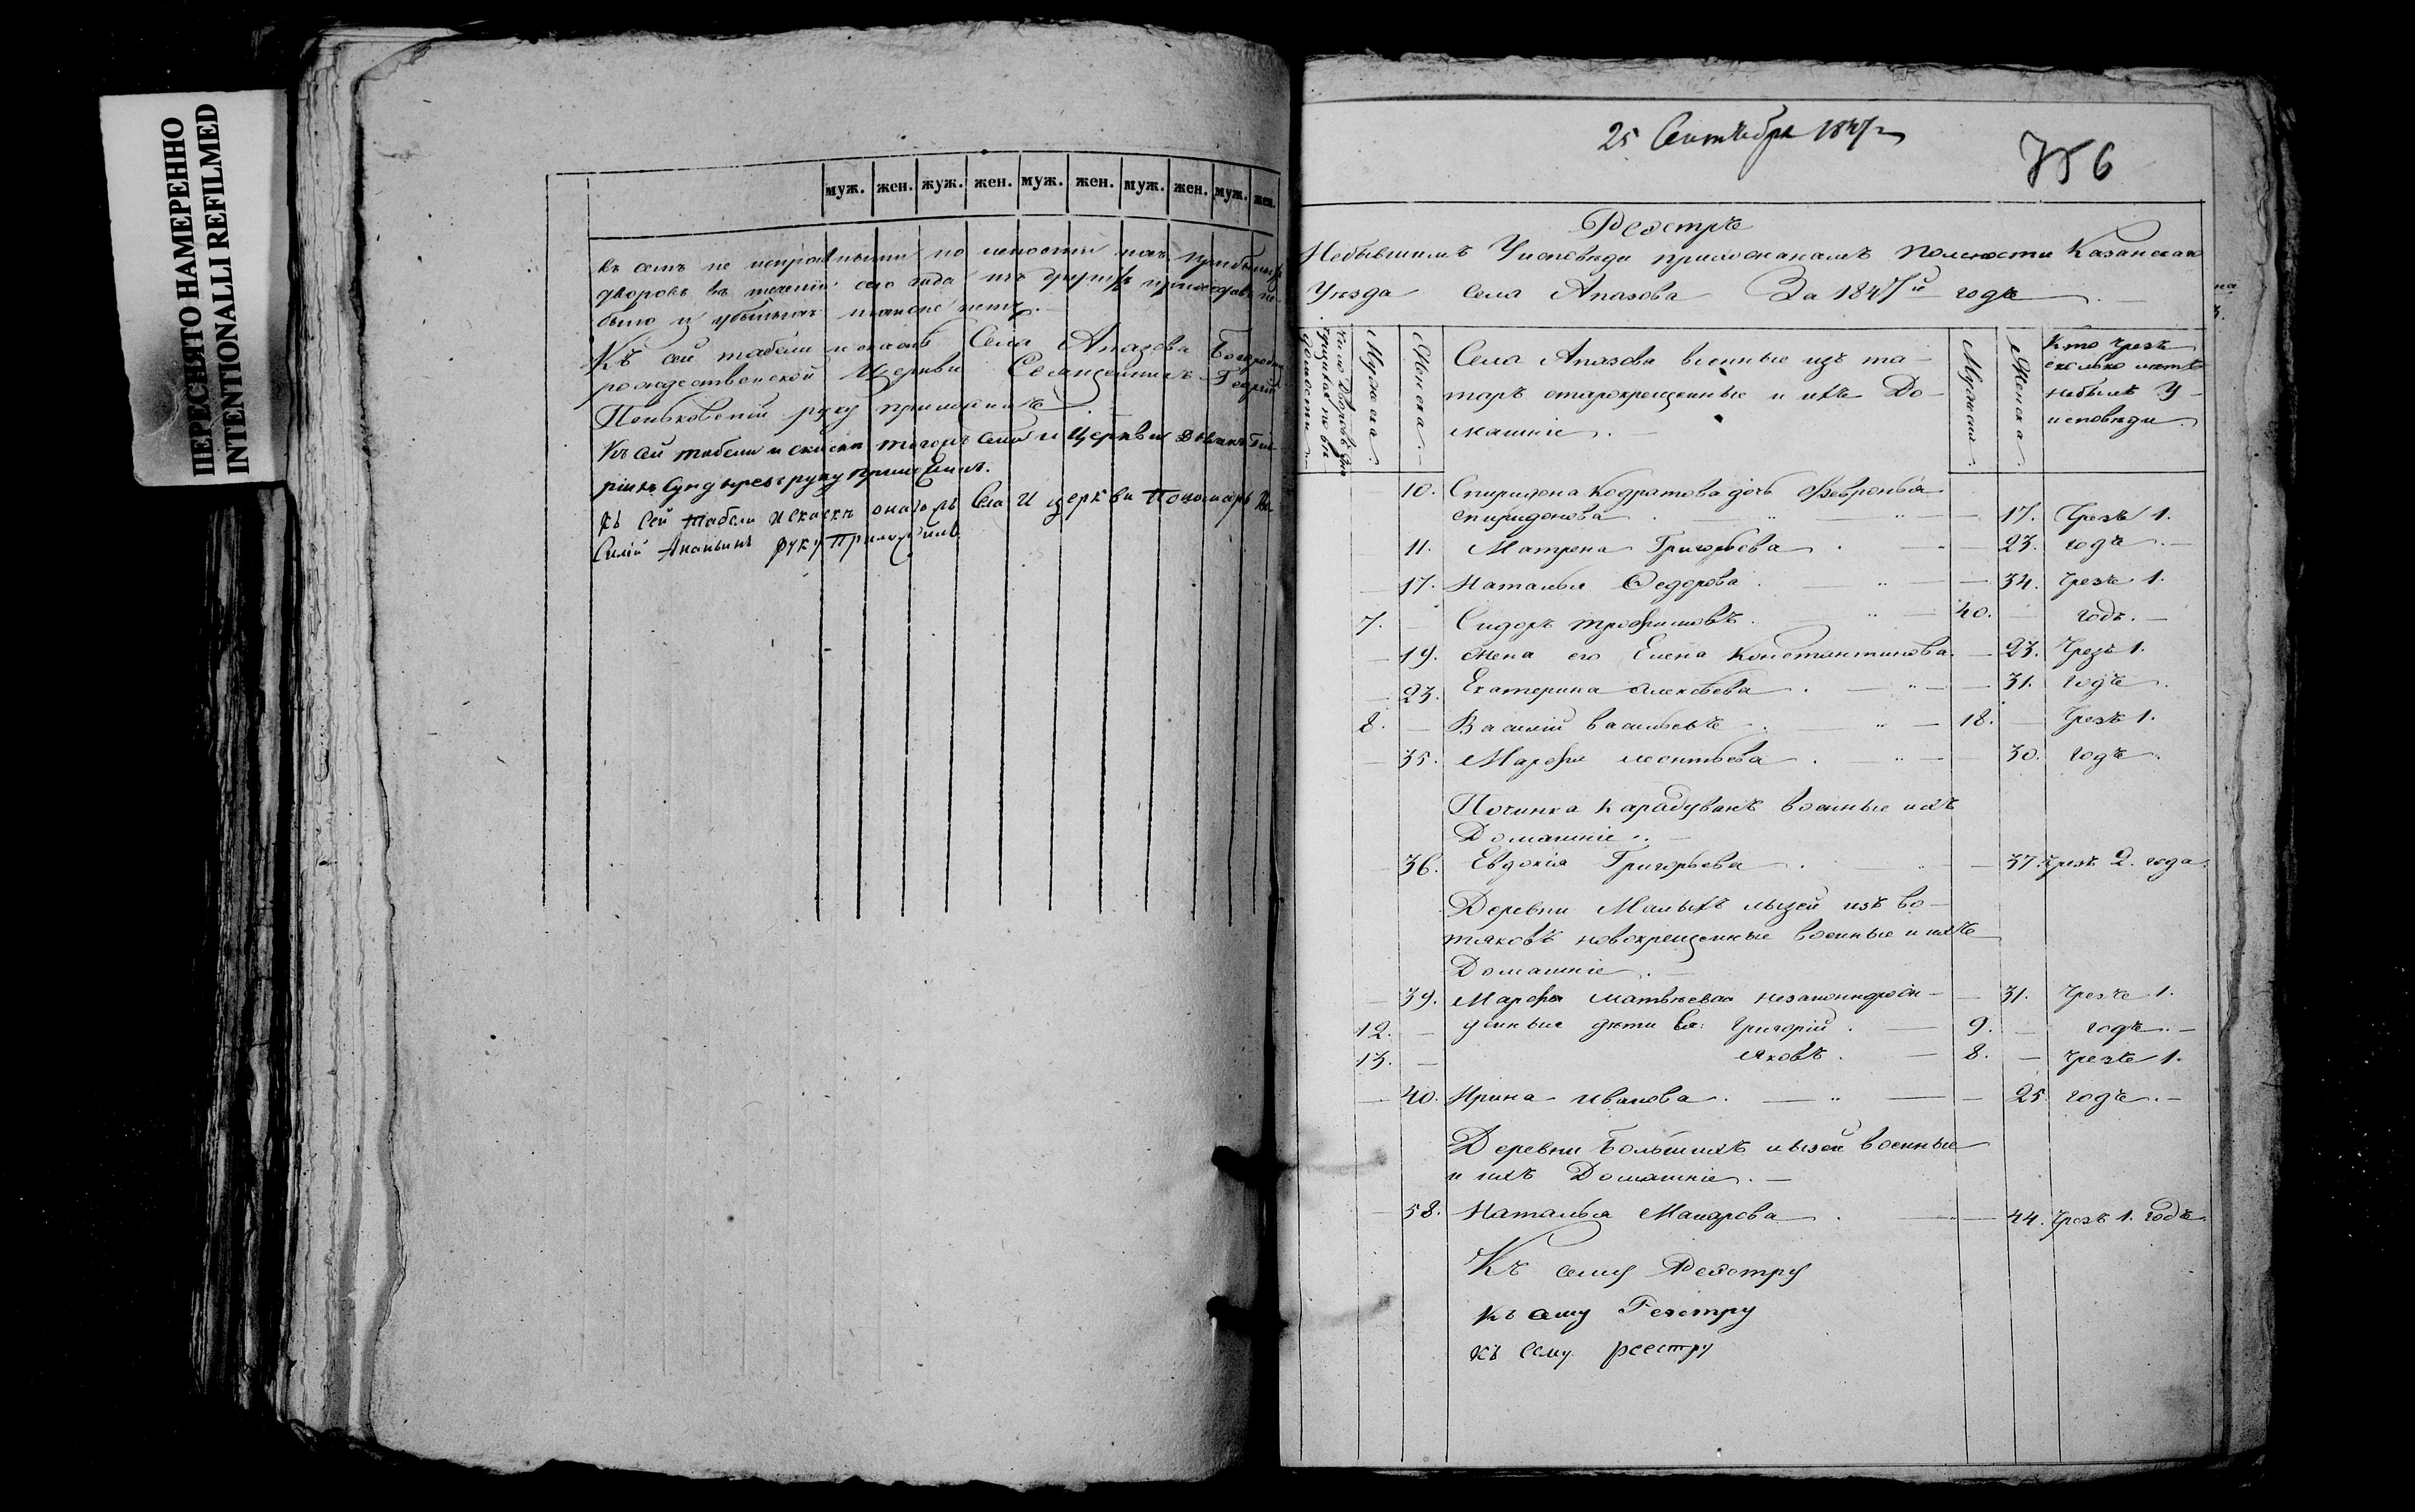 ПЕРЕСНЯТО НАМЕРЕННО
INTENTIONALLI REFILMED
муж. жен. жуж. жен. муж. жен. муж. жен. муж. жен.
въ семъ не исправными по лености
дворовъ въ течении сего года изъ других приходовъ не
было и убылыхъ также нетъ.
Къ сей табели и Села Апазова Богородице
рождественской Церкви Священникъ Георгий
Пеньковский руку приложилъ
Къ сей табели и скаски тогожъ села и Церкви
руку приложилъ.
Къ сей табели и скаскѣ онагожъ Села и церкви Пономарь Ва
силий Ананьинъ руку приложилъ
25 Сентября 1847 г
756
Реэстръ
Небывшимъ Уисповѣди прихожанамъ полености Казанскаго
Уѣзда Села Апазова За 1847й годъ
Мужеска.
Женска.
Села Апазова военные изъ та-
таръ старокрещенные и ихъ До-
машніе.
Мужеска.
Женска.
Кто чрезъ
сколько летъ
небылъ У
исповѣди
10. Спиридона Кодратова дочь Февронья
Спиридонова 17. Чрезъ 1.
11. Матрена Григорьева 23. годъ.
17. Наталья Федорова 34. Чрезъ 1.
7. Сидоръ трофимовъ. 40. годъ.
19. Жена его Елена Константинова. 23. Чрезъ 1.
23. Екатерина Алексѣева 31. годъ.
8. Василий васильевъ 18. Чрезъ 1.
35. Марфа леонтьева 30. годъ.
Починка Карадуванъ военные ихъ
Домашніе.
36. Евдокія Григорьева 37. Чрезъ 2. года.
Деревни Малыхъ лызей изъ во-
тяковъ новокрещенные военные и ихъ
Домашніе.
39. Марфа матвѣева незаконнорож- 31. Чрезъ 1.
12. денные дѣти Ея: Григорій. 9. годъ.
13. Яковъ. 8. Чрезъ 1.
40. Ирина иванова. 25. годъ.
Деревни Большихъ лызей военные
и ихъ Домашніе.
58. Наталья Макарова 44. Чрезъ 1. годъ.
Къ сему Реэстру
къ сему Реэстру
къ сему реестру